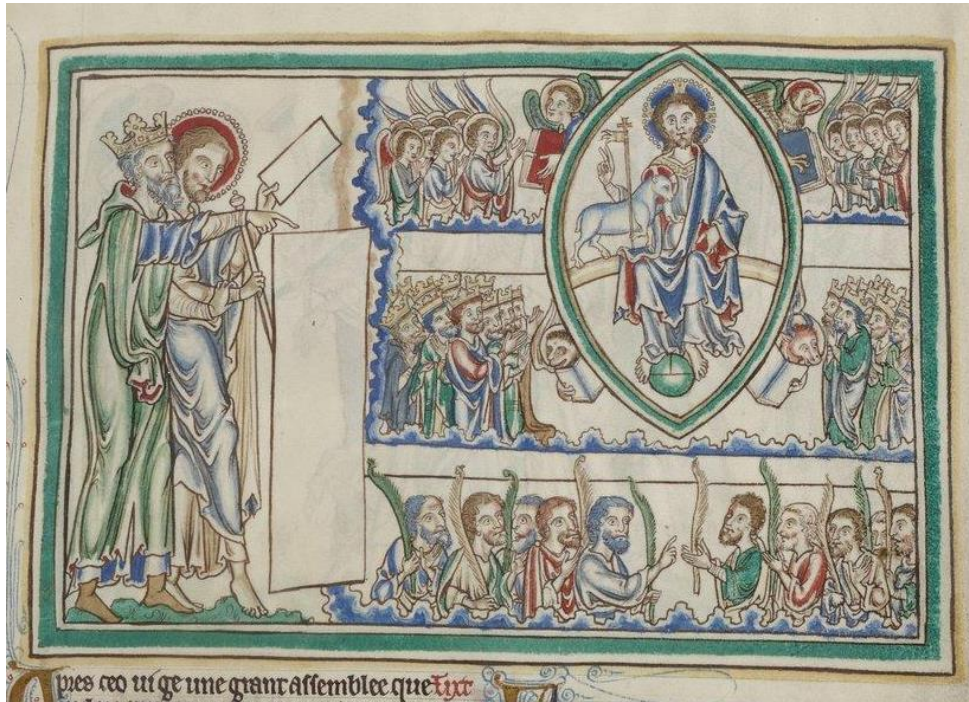 Apres ceo ui ge une grant assemblee que Tixt